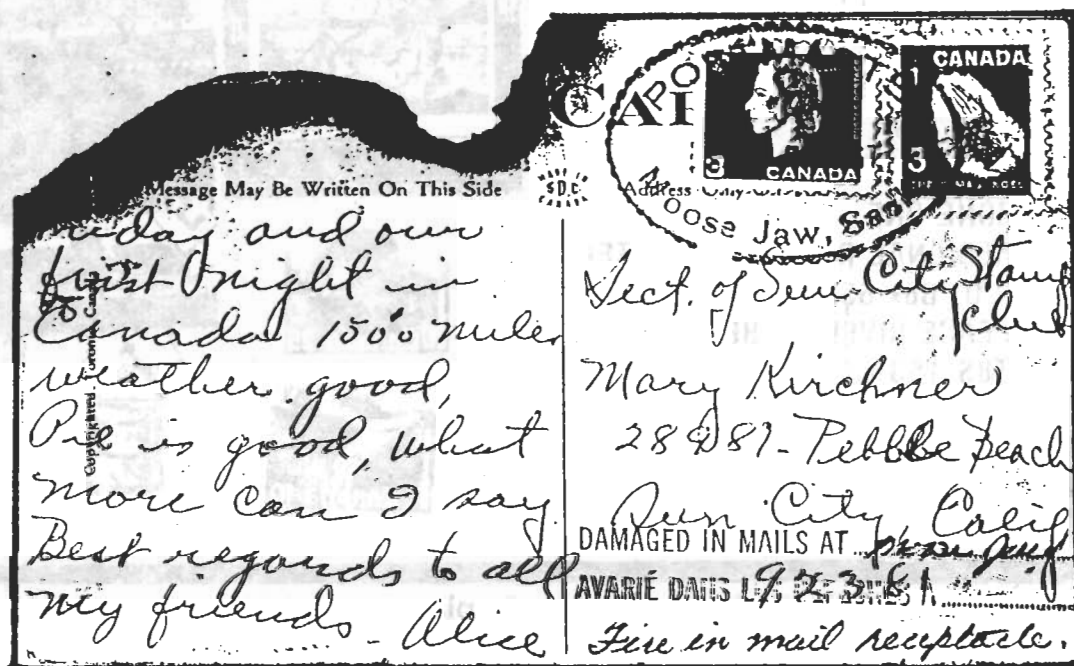 CANADA
1
3
CANADA
3
Message May Be Written On This Side
MADE IN
S.D.C.
CANADA
Address Only
Moose Jaw, Sask
and our
first night in
Canada 1500 miles
weather good,
Pie is good, what
more can I say
Best regards to all
my friends - Alice
Sect. of Sun City Stamp
club
Mary Kirchner
28081 - Pebble Beach
Sun City, Calif
DAMAGED IN MAILS AT
AVARIE DANS LES DEPECHES A
Fire in mail receptacle.
Copyrighted.